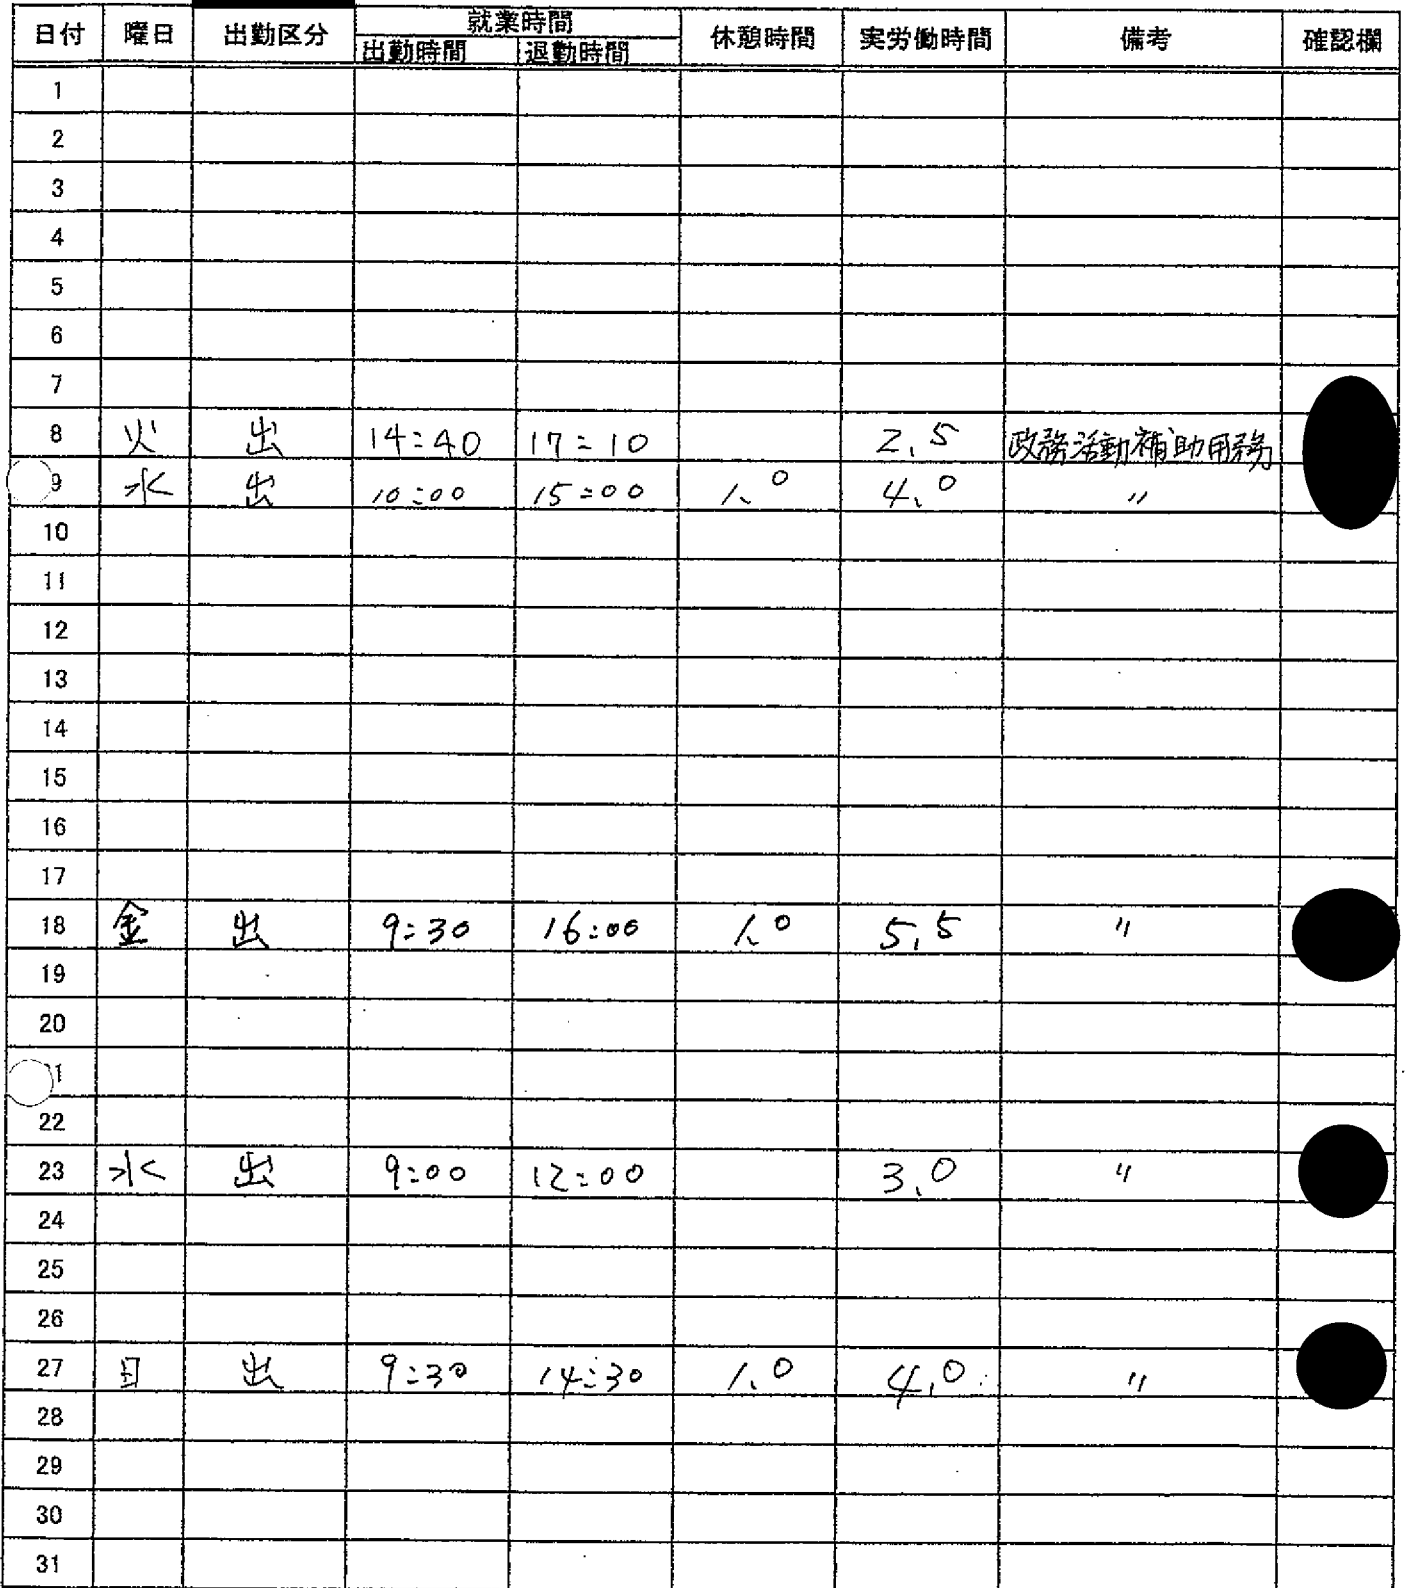 日付 曜日 出勤区分 就業時間 休憩時間 実労働時間 備考 確認欄
出勤時間 退勤時間
1
2
3
4
5
6
7
8 火 出 14:40 17:10 2.5 政務活動補助用務
9 水 出 10:00 15:00 1.0 4.0 〃
10
11
12
13
14
15
16
17
18 金 出 9:30 16:00 1.0 5.5 〃
19
20
1
22
23 水 出 9:00 12:00 3.0 〃
24
25
26
27 日 出 9:30 14:30 1.0 4.0 〃
28
29
30
31